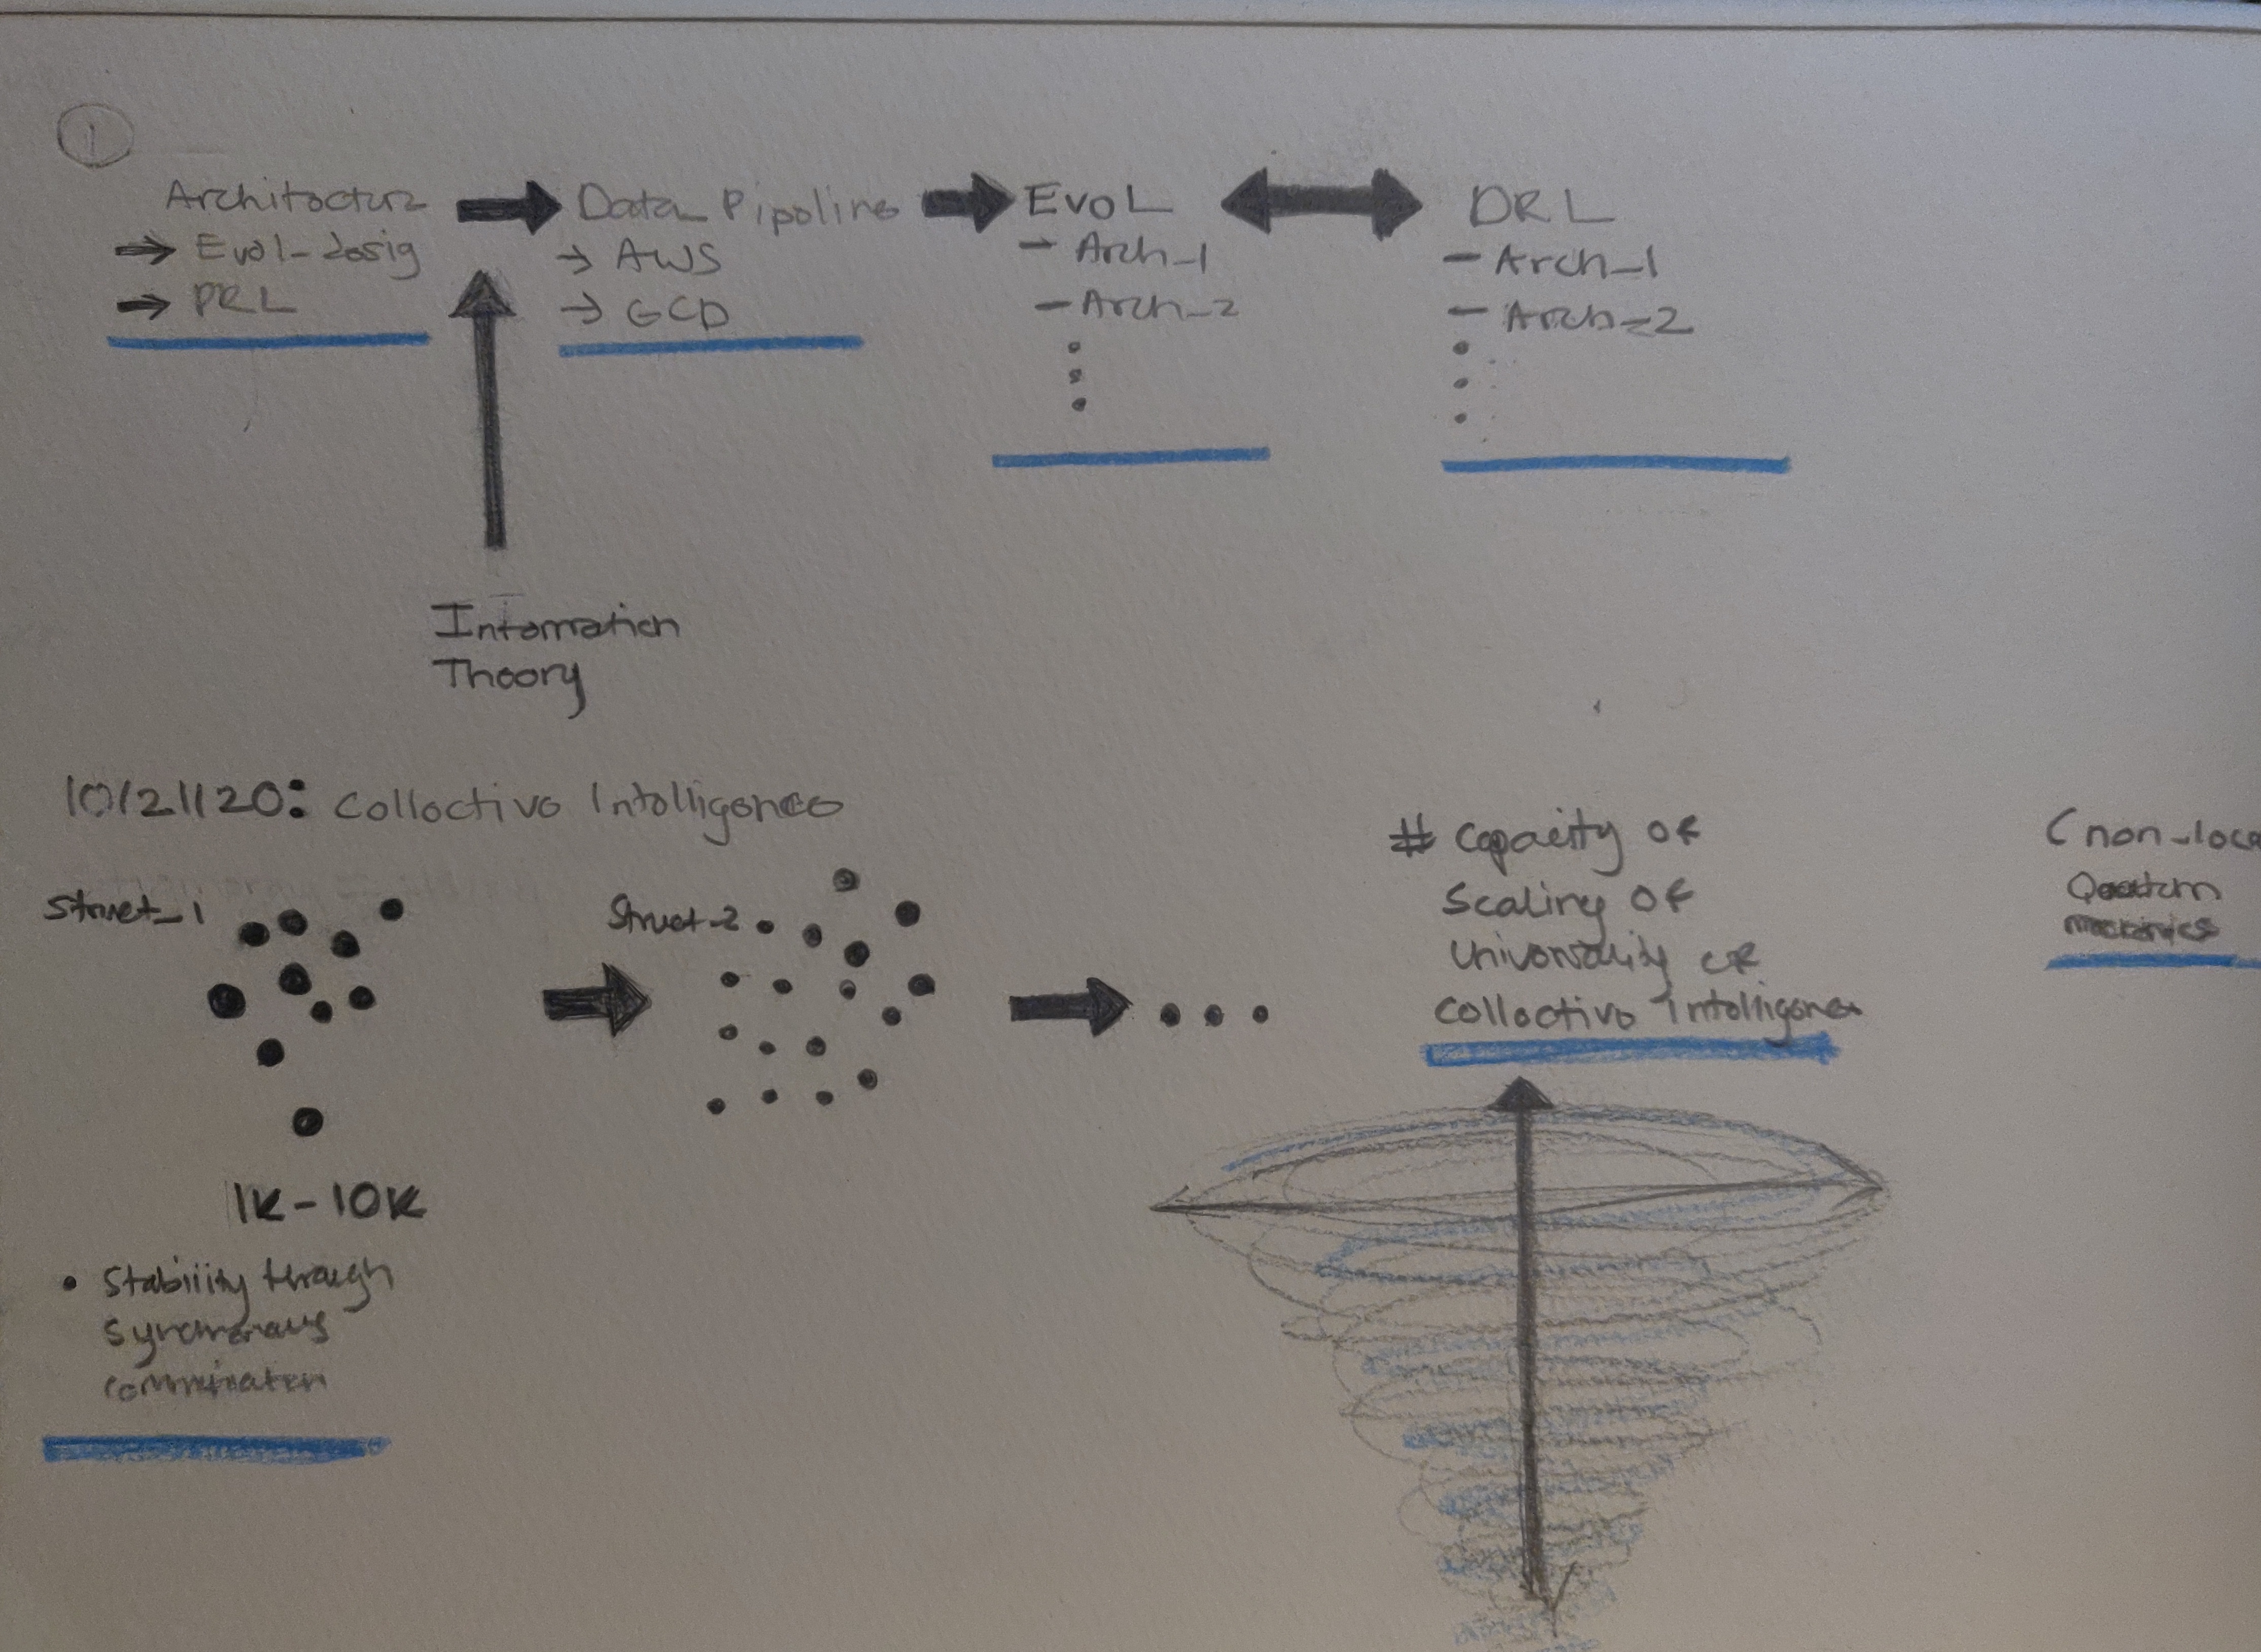 1
Architecture
Evol-desig
DRL
Data Pipeline
AWS
GCD
Evol
- Arch_1
- Arch_2
DRL
- Arch_1
- Arch_2
Information
Theory
10/21/20: Collective Intelligence
Struct_1
Struct_2
1K-10K
• Stability through
Synchronous
# Capacity of
Scaling of
Collective Intelligence
(non-loca
Quantum
mechanics